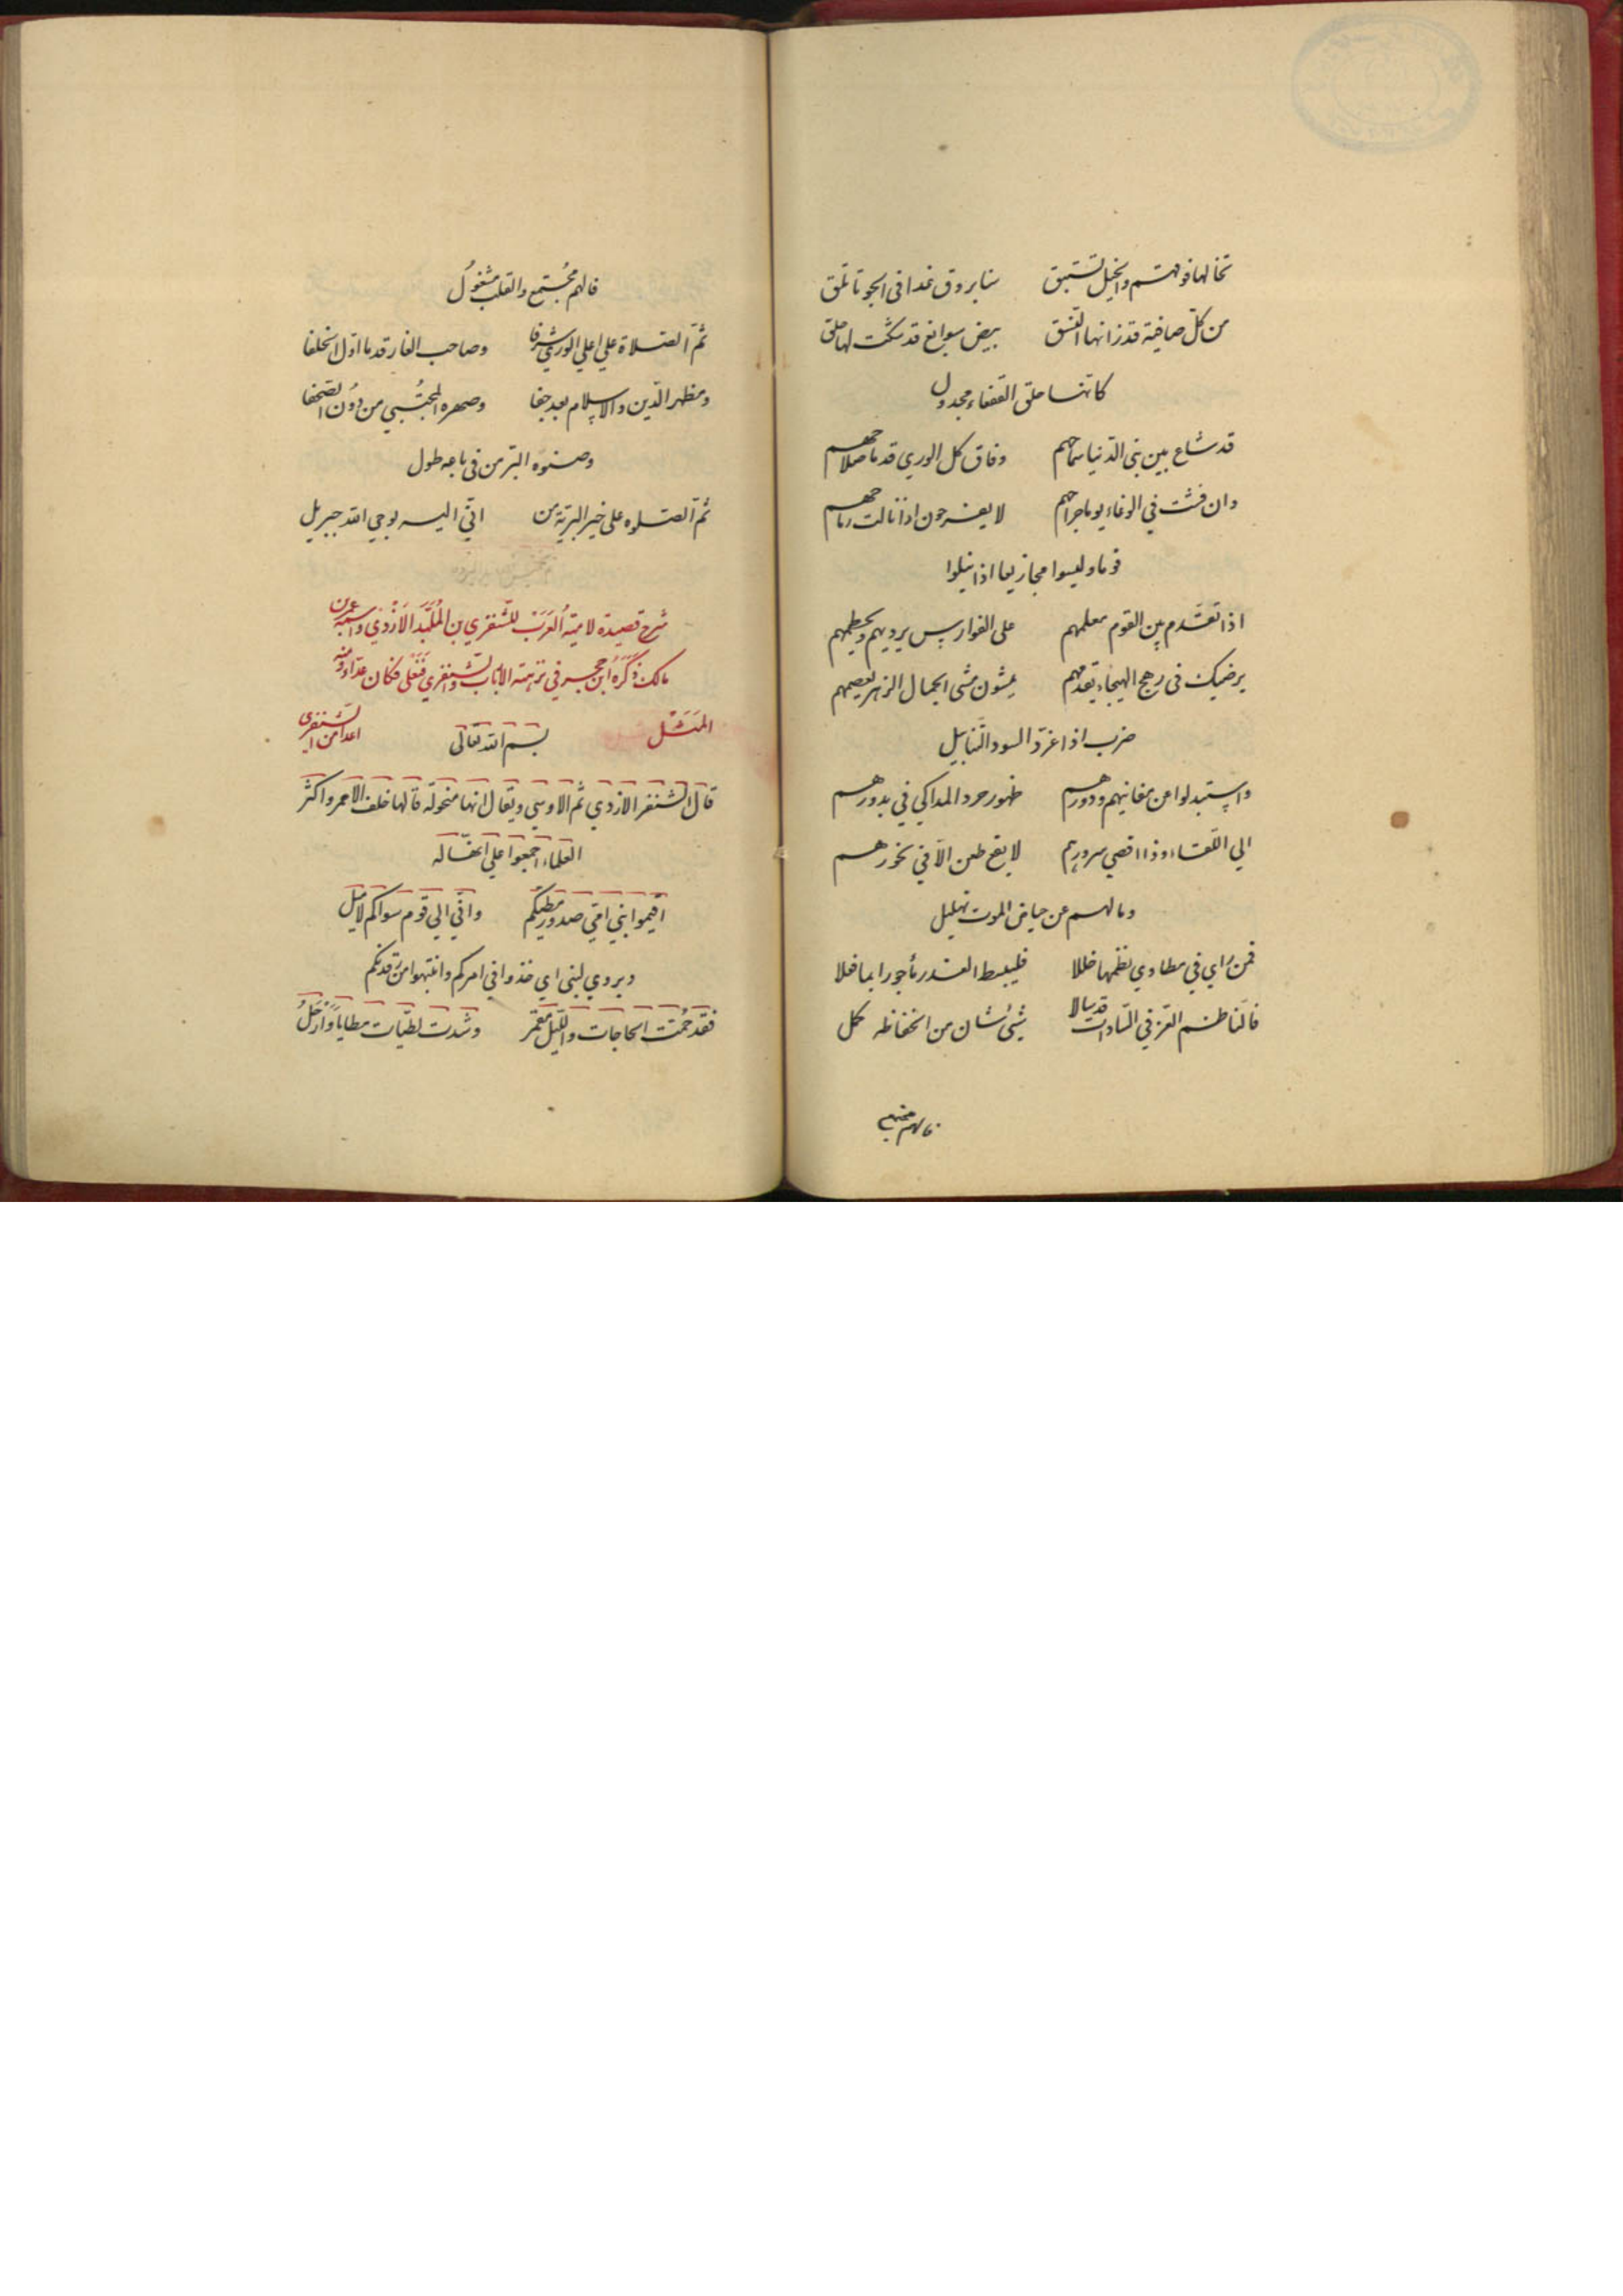 تخالها فوقهم والخيل تستبق سنا بروق غدا في الجو تاتلق
من كل صافية قد زانها النسق بيض سوابغ قد شكت لها حلق
كانها حلق القفعاء مجدول
قد شاع بين بني الدنيا سماحهم وفاق كل الوري قدما صلاحهم
وان فشت في الوغاء يوما جراحهم لا يفرحون اذا نالت رماحهم
قوما وليسوا مجازيعا اذا نيلوا
اذا تقدم بين القوم معلمهم على الفوارس يرديهم ويحطمهم
يرضيك في رهج الهيجاء تقدمهم يمشون مشي الجمال الزهر يعصمهم
ضرب اذا غرد السود التنابيل
واستبدلوا من مغانيهم ودورهم ظهور جرد المذاكي في بدورهم
الي اللقاء وذا اقصي سرورهم لا يقع طعن الا في نحورهم
وما لهم عن حياض الموت تهليل
فمن راي في مطاوي نظمها خللا فليبسط العذر ماجورا بما فعلا
فالناظم العز في السادات قد سالا شيئ من كمل
فالهم مجتمع
فالهم مجتمع والقلب مشغول
ثم الصلاة علي اعلي الوري شرفا وصاحب الغار قدما اول الخلفا
ومظهر الدين والاسلام بعد جفا وصهره المجتبي من دون الصحفا
وصنوه البر من في باعه طول
ثم الصلوه على خير البرية من اتي اليه بوحي الله جبريل
شرح قصيدة لامية العرب للشنفري بن الازدي واسمه عمرو بن
مالك ذكره ابن حجر في نزهة الالباب والشنفري فنعلى فكان عداء ومنه
المثل بسم الله تعالى اعدا من الشنفري
قال الشنفر الازدي ثم الاوسي ويقال انها منحوله قالها خلف الاحمر واكثر
العلماء اجمعوا علي انها له
اقيموا بني امي صدور مطيكم واني الي قوم سواكم لاميل
ويروي لبني اي خذوا في امركم وانتبهوا من رقدتكم
فقد حمت الحاجات والليل مقمر وشدت لطيات مطايا وارحل